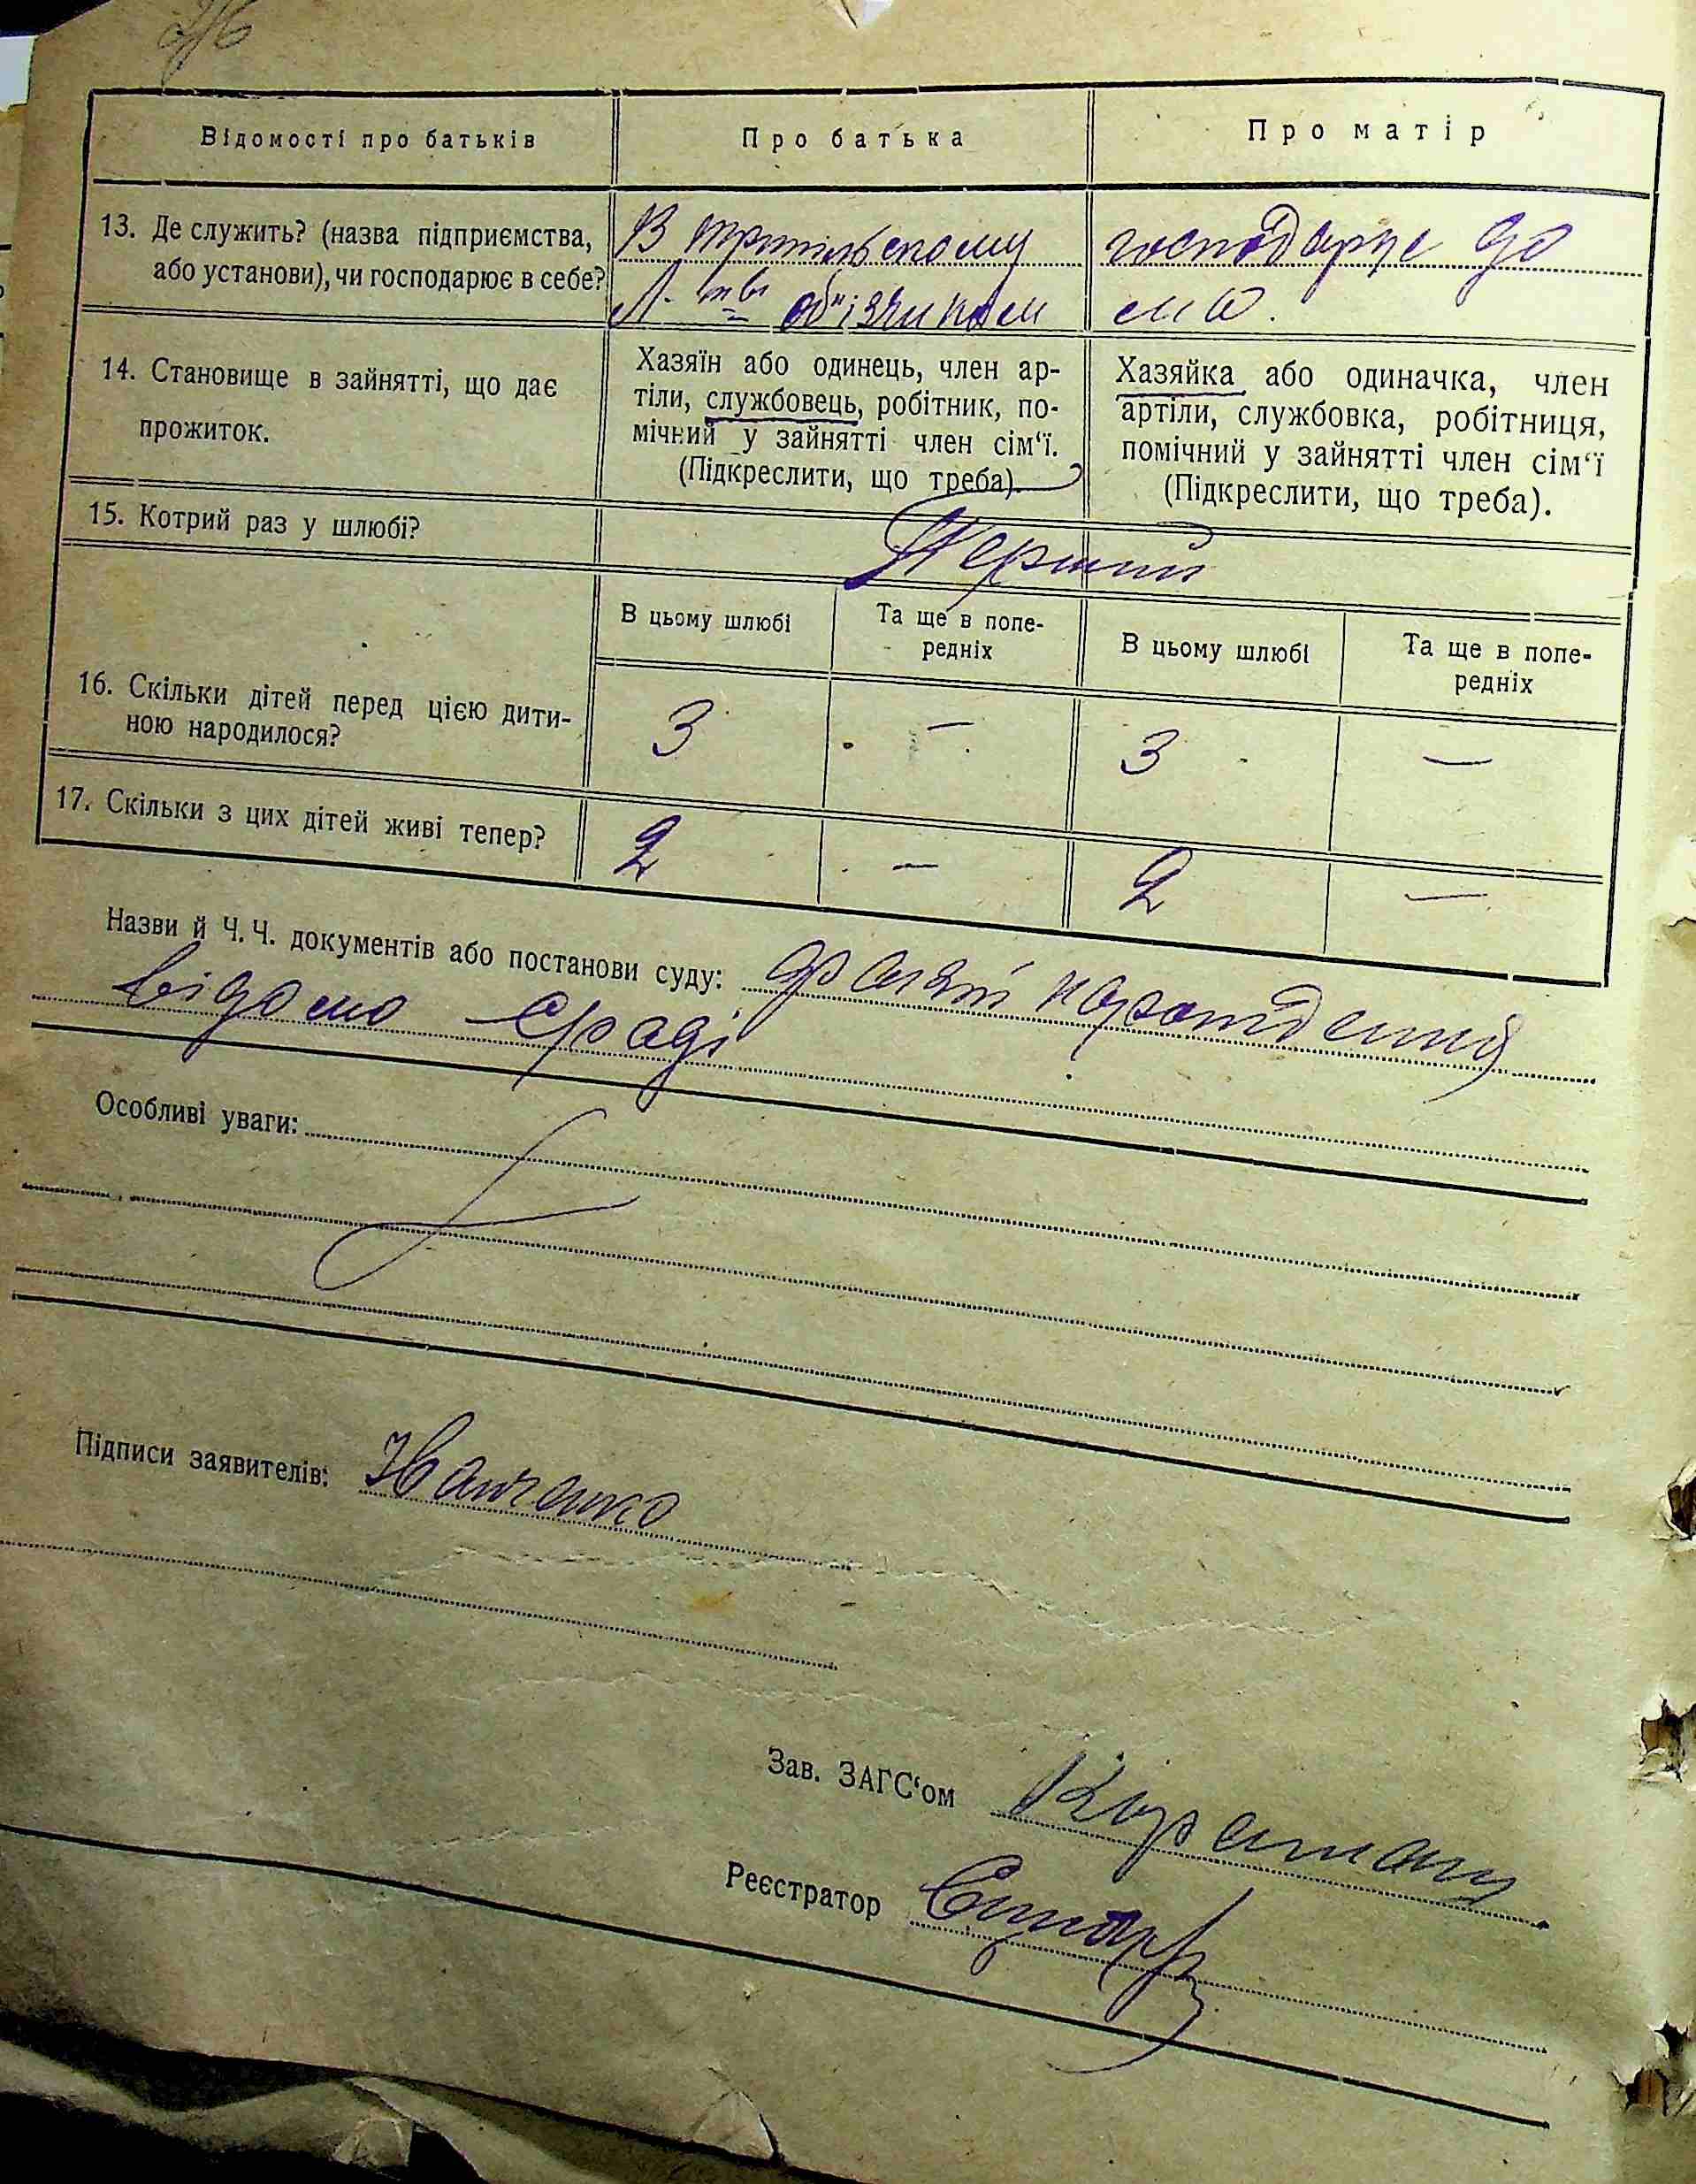 Відомості про батьків
Про батька
Про матір
13. Де служить? (назва підприємства,
або установи), чи господарює в себе?
В
Л-тві об'їзчиком
господарює до
ма.
14. Становище в зайнятті, що дає
прожиток.
Хазяїн або одинець, член ар-
тіли, службовець, робітник, по-
мічний у зайнятті член сім‘ї.
(Підкреслити, що треба).
Хазяйка або одиначка, член
артіли, службовка, робітниця,
помічний у зайнятті член сім‘ї
(Підкреслити, що треба).
15. Котрий раз у шлюбі?
Перший
В цьому шлюбі
Та ще в попе-
редніх
В цьому шлюбі
Та ще в попе-
редніх
16. Скільки дітей перед цією дити-
ною народилося?
3
—
3
—
17. Скільки з цих дітей живі тепер?
2
—
2
—
Назви й Ч.Ч. документів або постанови суду: факт народження
відомо сраді
Особливі уваги:
Підписи заявителів: Іванченко
Зав. ЗАГС‘ом
Реєстратор